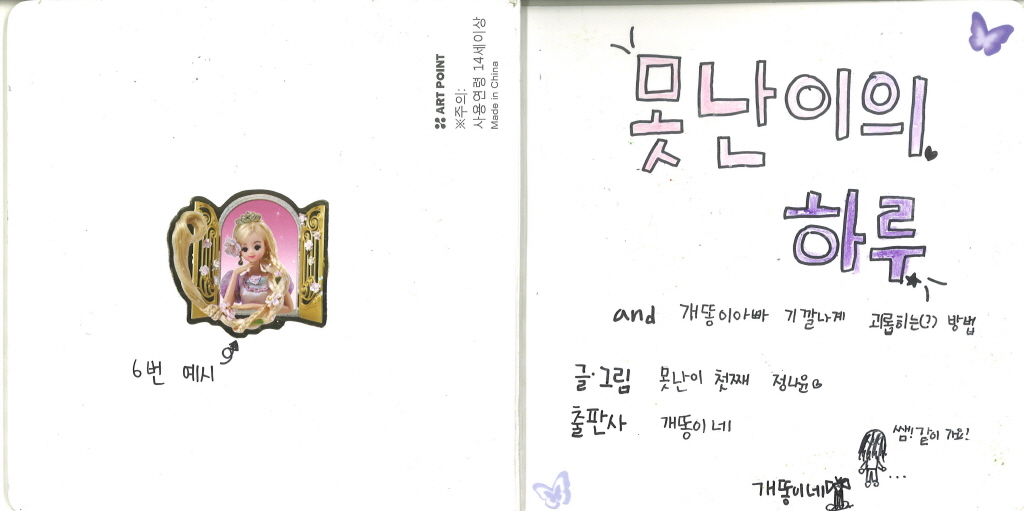 ART POINT
※주의:
사용연령 14세이상
Made in China
6번 예시
못난이의
하루
and 개똥이아빠 기깔나게 괴롭히는(?) 방법
글·그림 못난이 첫째 정나윤
출판사 개똥이네
쌤! 같이 가요!
...
개똥이네